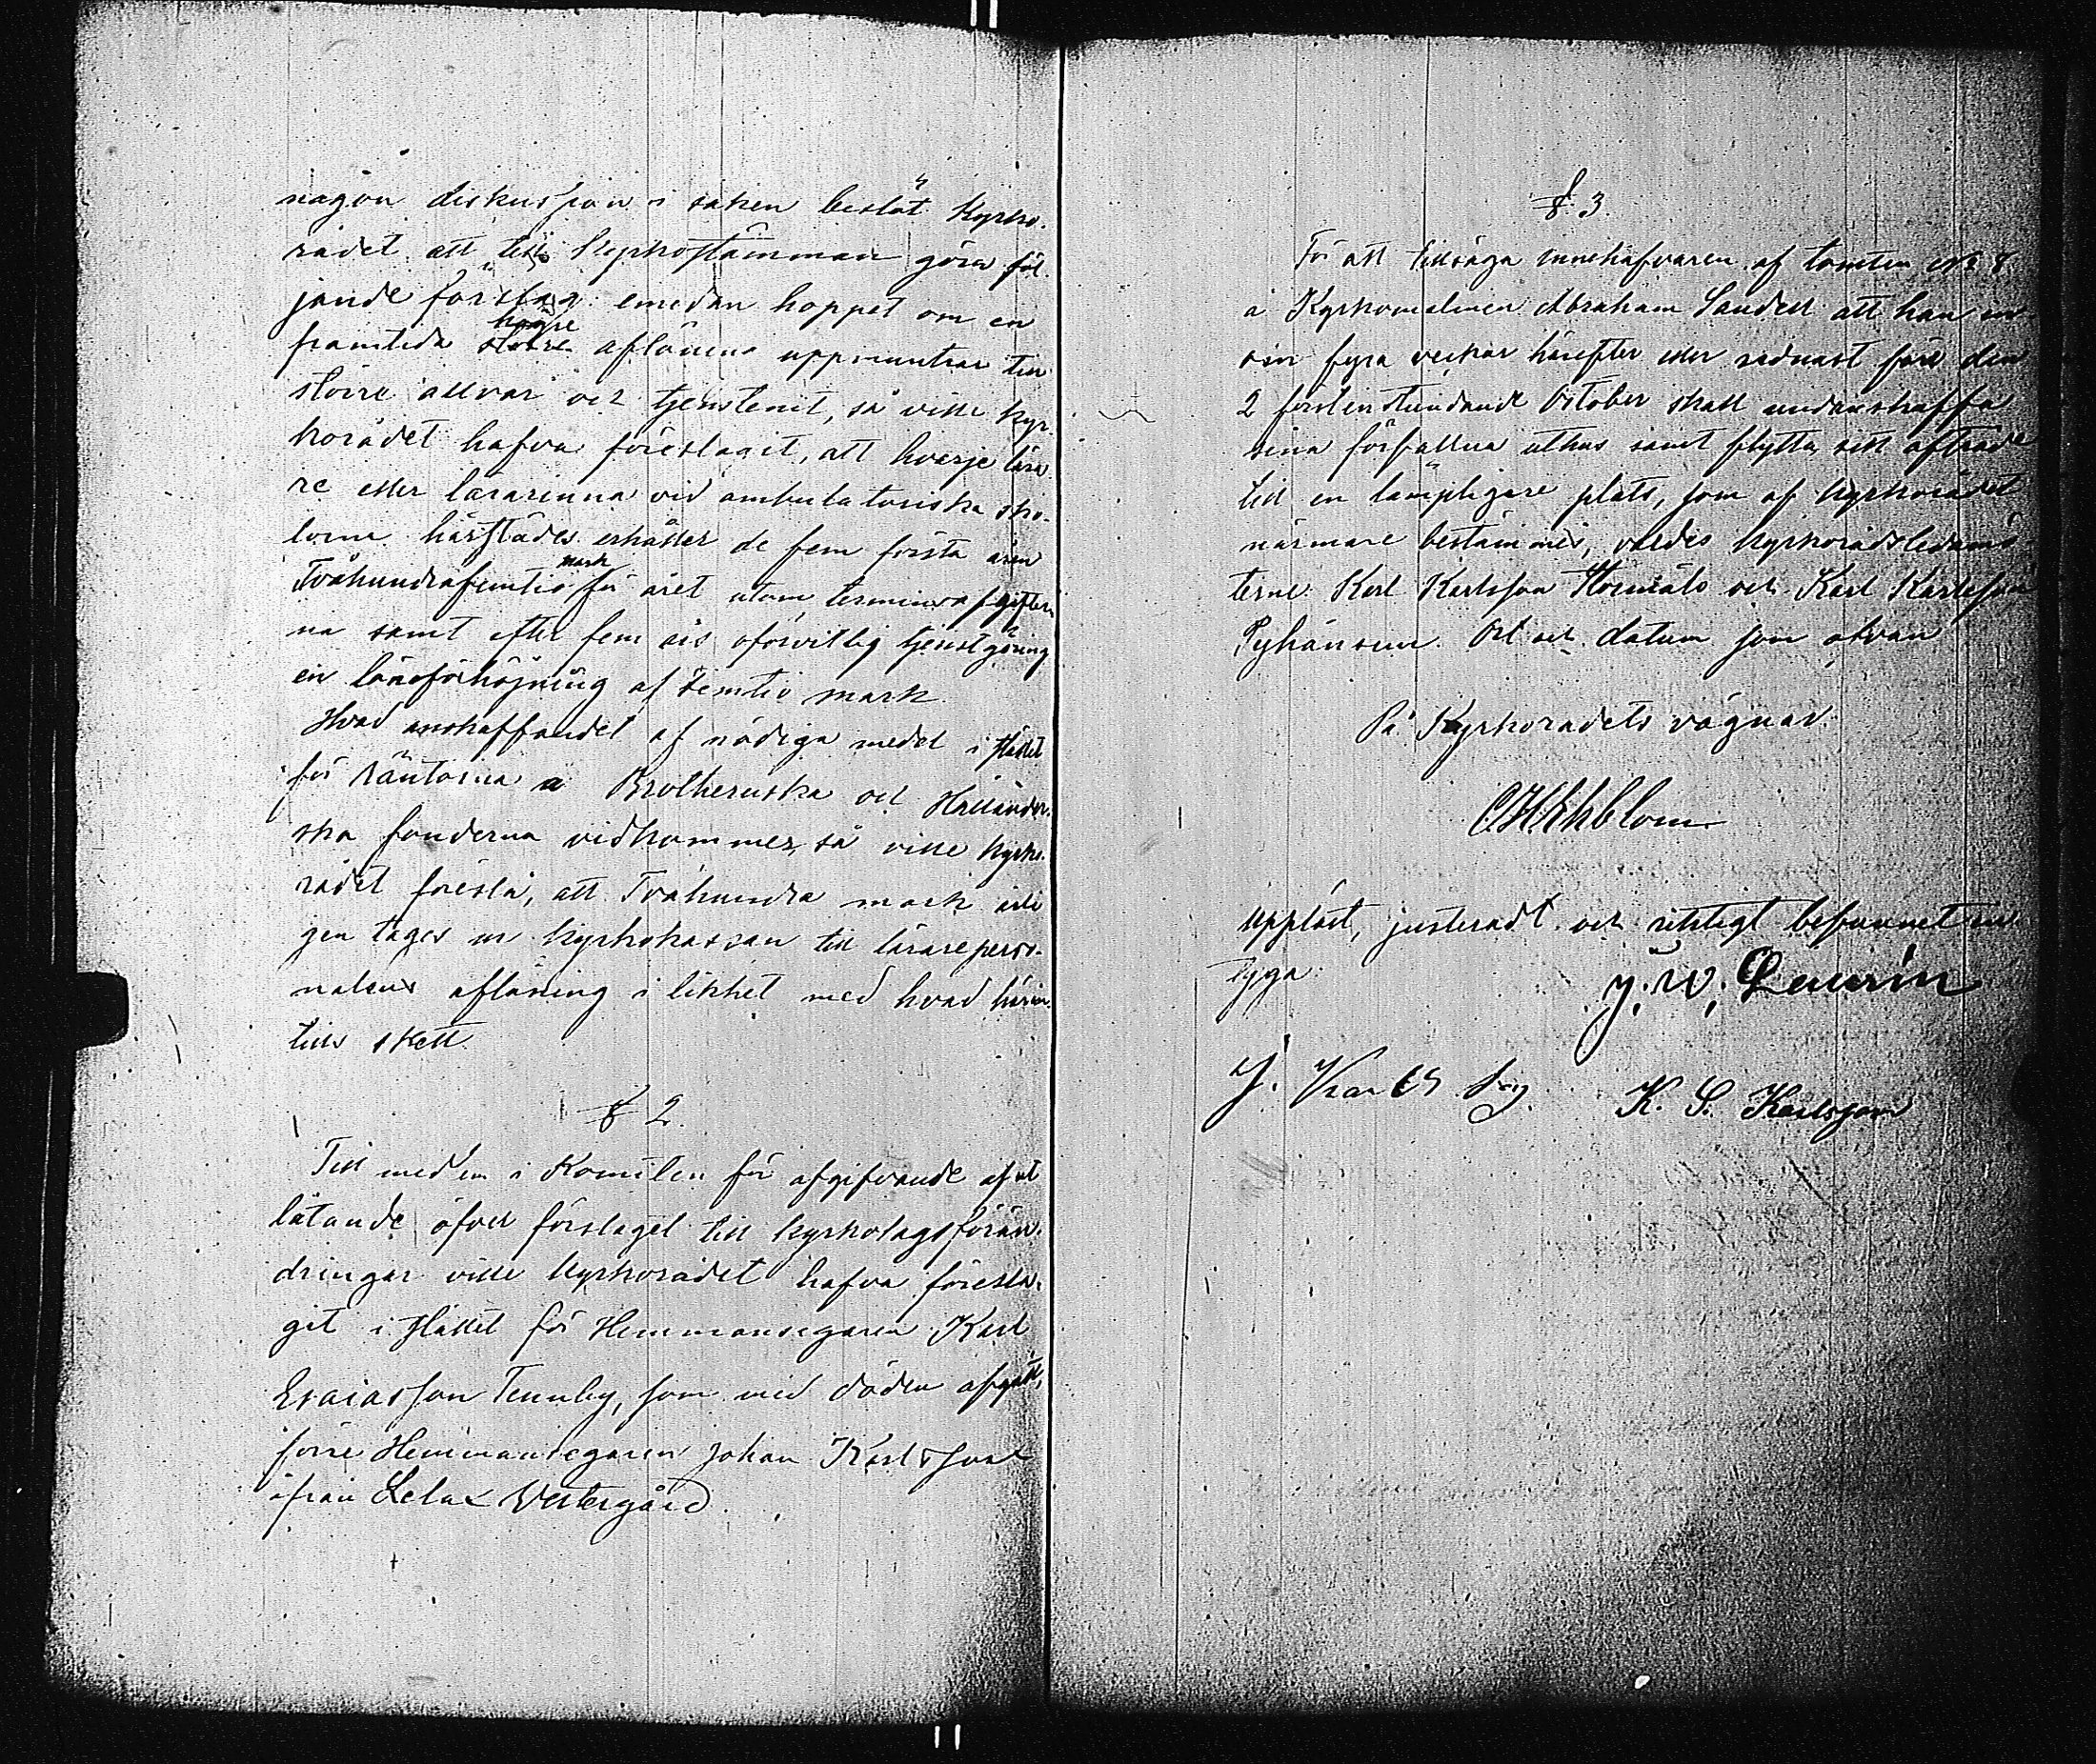 någon diskussion i saken beslöt Kyrko-
rådet att till Kyrkostämman göra föl-
jande förslag: emedan hoppet om en
framtida högre större aflöning uppmuntrar till
större allvar och tjenstenit, så ville kyr-
korådet hafva föreslagit, att hvarje lära-
re eller lärarinna vid ambulatoriska sko-
lorna härstädes erhåller de fem första åren
Tvåhundrafemtio mark för året utom terminsafgifter-
na samt efter fem års oförvitlig tjenstgöring
en löneförhöjning af femtio mark.
Hvad anskaffandet af nödiga medel i stället
för räntorna a Brotheruska och Hallander-
ska fonderna vidkommer, så ville kyrko-
rådet föreslå, att Tvåhundra mark årli-
gen tages ur kyrkokassan till lärareperso-
nalens aflöning i likhet med hvad härin-
tills skett.
§ 2.
Till medlem i Komitén för afgifvande af ut-
låtande öfver förslaget till kyrkolagsförän-
dringar ville Kyrkorådet hafva föresla-
git i stället för Hemmansegaren Karl
Esaiasson Tennby, som med döden afgått,
förre Hemmansegaren Johan Karlsson
ifrån Lelax Westergård.
§ 3.
För att tillsäga innehafvaren af tomten N:o 8
å Kyrkomalmen Abraham Sandell att han in-
om fyra veckor härefter eller sednast före den
2 förstinstundande October skall undanskaffa
sina förfallna uthus samt flytta sitt afträde
till en lämpligare plats, som af kyrkorådet
närmare bestämmes, valdes kyrkorådsledamö-
terne Karl Karlsson och Karl Karlsson
Ort och datum som ofvan
På Kyrkorådets vägnar:
C H Ekblom
Uppläst, justeradt och riktigt befunnet in-
tyga:
J. W. Laurin
J. Karlsson
K. S. Karlsson